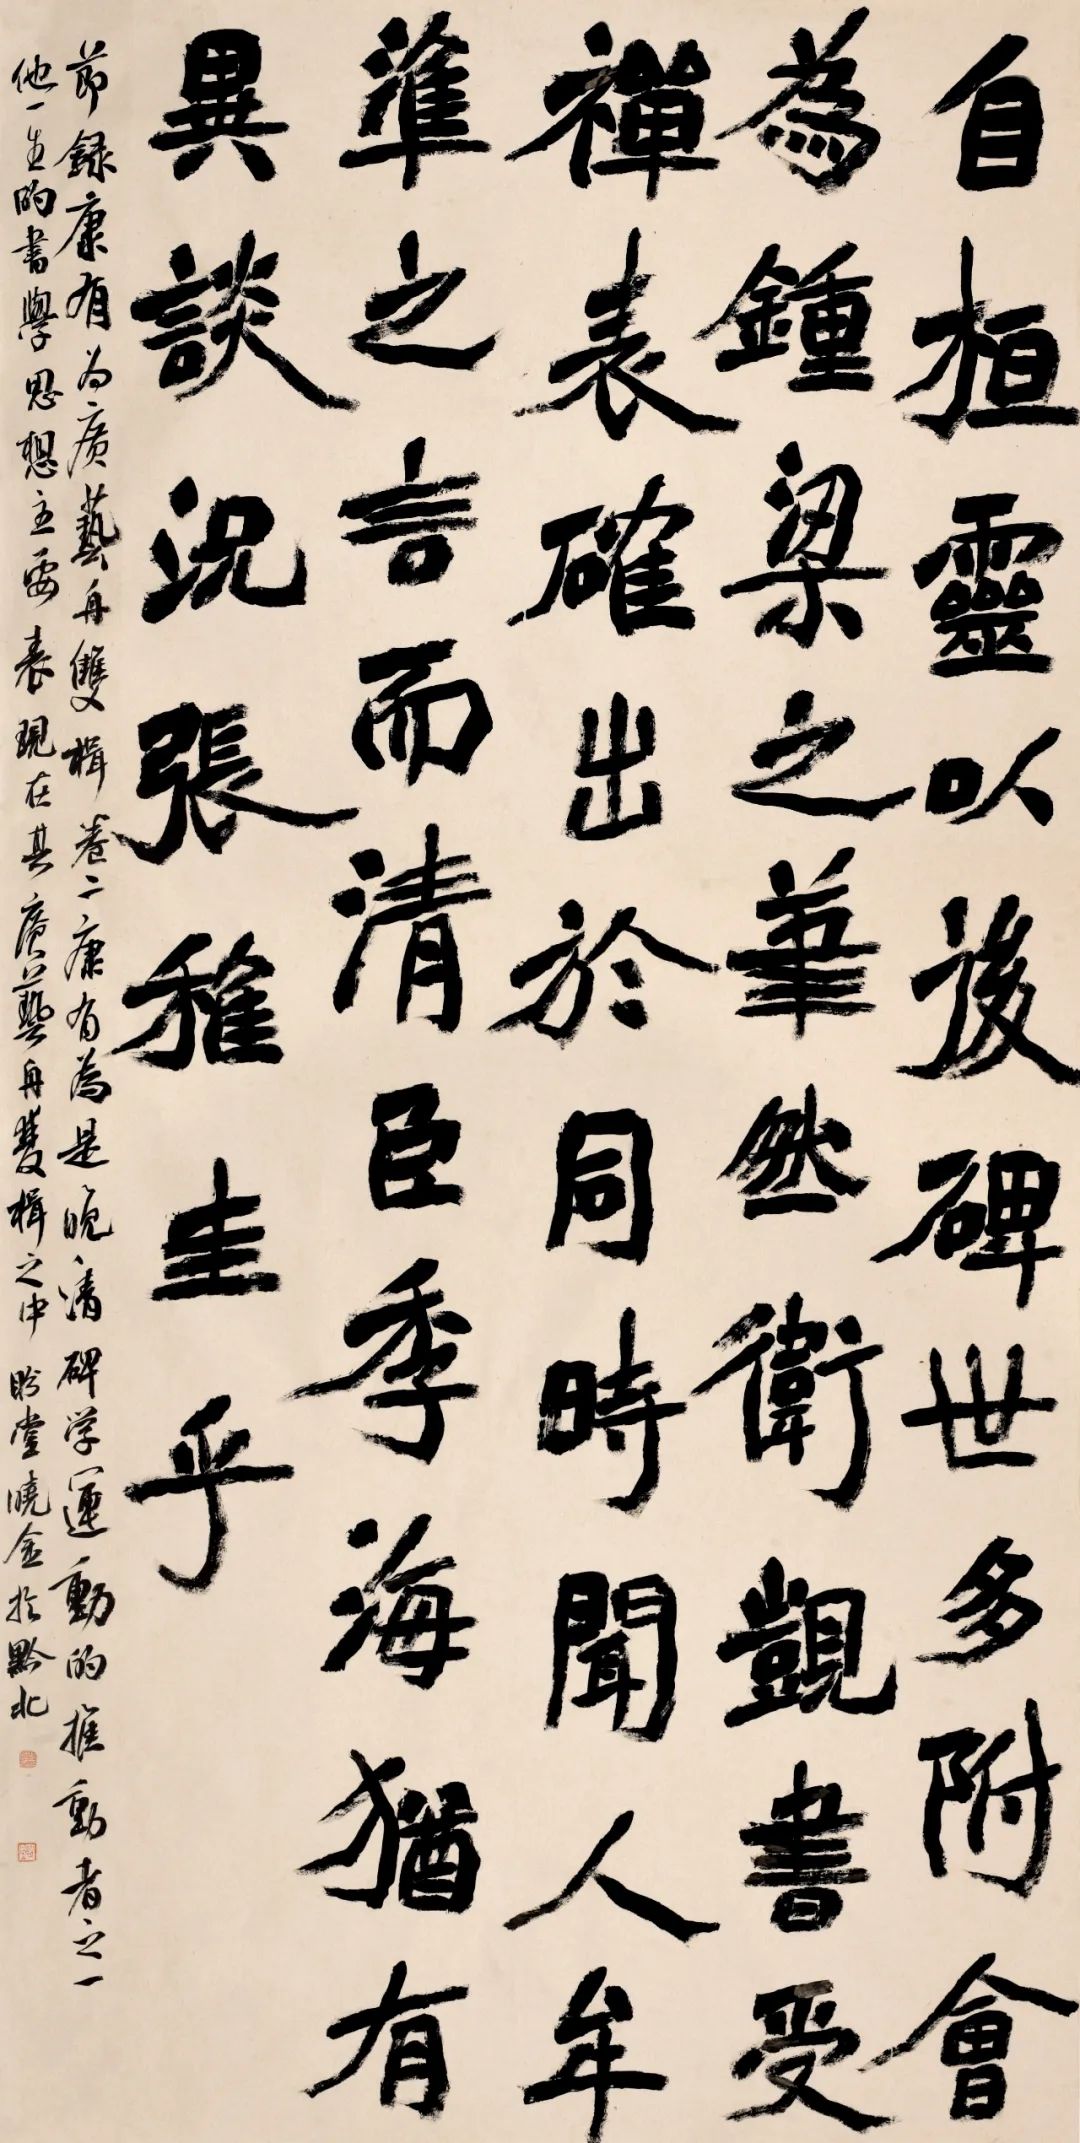 自桓靈以後碑世多附會
為鍾梁之筆然衛覬書受
禪表確出於同時聞人牟
準之言而清臣季海猶有
異談況張稚圭乎
節錄康有为廣藝舟雙楫卷二康有為是晚清碑学運動的推動者之一
他一生的書學思想主要表現在其廣藝舟雙楫之中 盼堂曉金於黔北